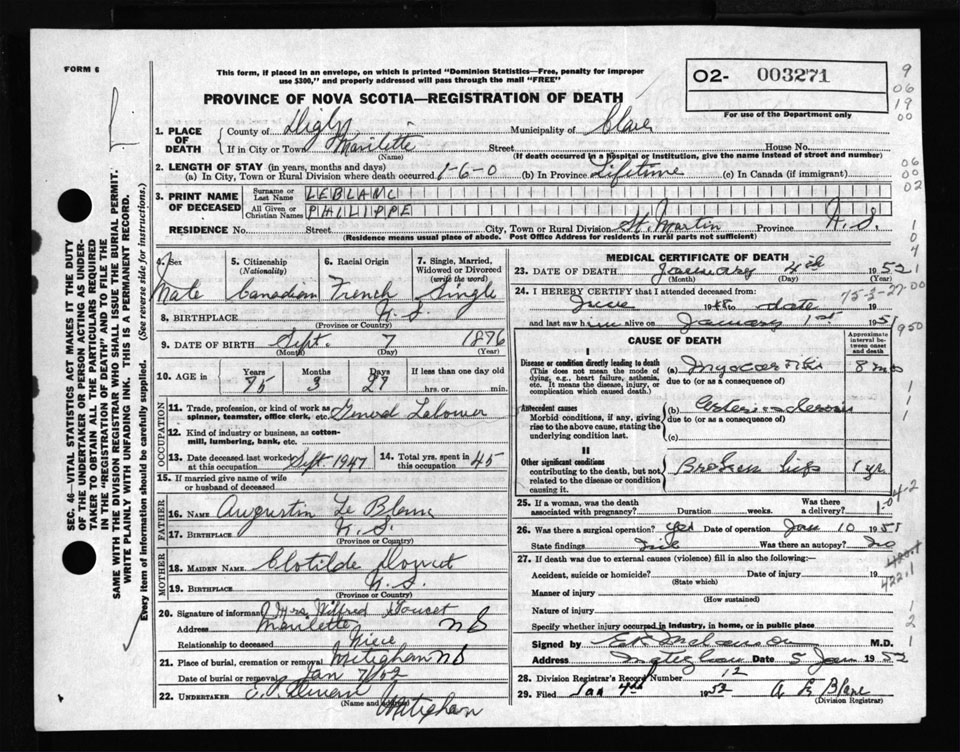 FORM 6
This form, if placed in an envelope, on which is printed "Dominion Statistics—Free, penalty for improper
use $300," and properly addressed will pass through the mail "FREE"
O2- 003271
For use of the Department only
PROVINCE OF NOVA SCOTIA—REGISTRATION OF DEATH
1. PLACE OF DEATH County of Digby Municipality of Clare
If in City or Town Street House No.
(Name) (If death occurred in a hospital or institution, give the name instead of street and number)
2. LENGTH OF STAY (in years, months and days)
(a) In City, Town or Rural Division where death occurred 1-6-0 (b) In Province Lifetime (c) In Canada (if immigrant)
3. PRINT NAME OF DECEASED Surname or Last Name LEBLANC
All Given or Christian Names PHILIPPE
RESIDENCE No. Street City, Town or Rural Division St. Martin Province N.S.
(Residence means usual place of abode. Post Office Address for residents in rural parts not sufficient)
4. Sex 5. Citizenship (Nationality) 6. Racial Origin 7. Single, Married, Widowed or Divorced (write the word)
Male Canadian French Single
8. BIRTHPLACE N.S.
(Province or Country)
9. DATE OF BIRTH Sept. 7 1876
(Month) (Day) (Year)
10. AGE in Years Months Days If less than one day old
75 3 27 hrs. or min.
OCCUPATION
11. Trade, profession, or kind of work as spinner, teamster, office clerk, etc. General Labourer
12. Kind of industry or business, as cotton-mill, lumbering, bank, etc.
13. Date deceased last worked at this occupation Sept 1947 14. Total yrs. spent in this occupation 45
15. If married give name of wife or husband of deceased
FATHER
16. NAME Augustin Le Blanc
17. BIRTHPLACE N.S.
(Province or Country)
MOTHER
18. MAIDEN NAME Clotilde Doucet
19. BIRTHPLACE N.S.
(Province or Country)
20. Signature of informant Mrs. Wilfred Doucet
Address NS
Relationship to deceased Niece
21. Place of burial, cremation or removal Meteghan NS
Date of burial or removal Jan 7/52
22. UNDERTAKER
(Name and address) Meteghan
MEDICAL CERTIFICATE OF DEATH
23. DATE OF DEATH January 4th 1952
24. I HEREBY CERTIFY that I attended deceased from:
19 to date 19
and last saw him alive on January 1st 1951
CAUSE OF DEATH
Approximate interval between onset and death
I
Disease or condition directly leading to death
(This does not mean the mode of dying, e.g., heart failure, asthenia, etc. It means the disease, injury, or complication which caused death.)
(a) 8 mos
due to (or as a consequence of)
Antecedent causes
Morbid conditions, if any, giving rise to the above cause, stating the underlying condition last.
(b)
due to (or as a consequence of)
(c)
II
Other significant conditions
contributing to the death, but not related to the disease or condition causing it.
Broken hip 1 yr
25. If a woman, was the death associated with pregnancy? Duration weeks. Was there a delivery?
26. Was there a surgical operation? Yes Date of operation Jan 10 1951
State findings Was there an autopsy? No
27. If death was due to external causes (violence) fill in also the following:
Accident, suicide or homicide? Date of injury 19
(State which)
Manner of injury
(How sustained)
Nature of injury
Specify whether injury occurred in industry, in home, or in public place
Signed by M.D.
Address Meteghan Date 5 Jan 1952
28. Division Registrar's Record Number 12
29. Filed Jan 4th 1952
(Division Registrar)
SEC. 46—VITAL STATISTICS ACT MAKES IT THE DUTY
OF THE UNDERTAKER OR PERSON ACTING AS UNDER-
TAKER TO OBTAIN ALL THE PARTICULARS REQUIRED
IN THE "REGISTRATION OF DEATH" AND TO FILE THE
SAME WITH THE DIVISION REGISTRAR WHO SHALL ISSUE THE BURIAL PERMIT.
WRITE PLAINLY WITH UNFADING INK. THIS IS A PERMANENT RECORD.
Every item of information should be carefully supplied. (See reverse side for instructions.)
75-3-27-00
422.1